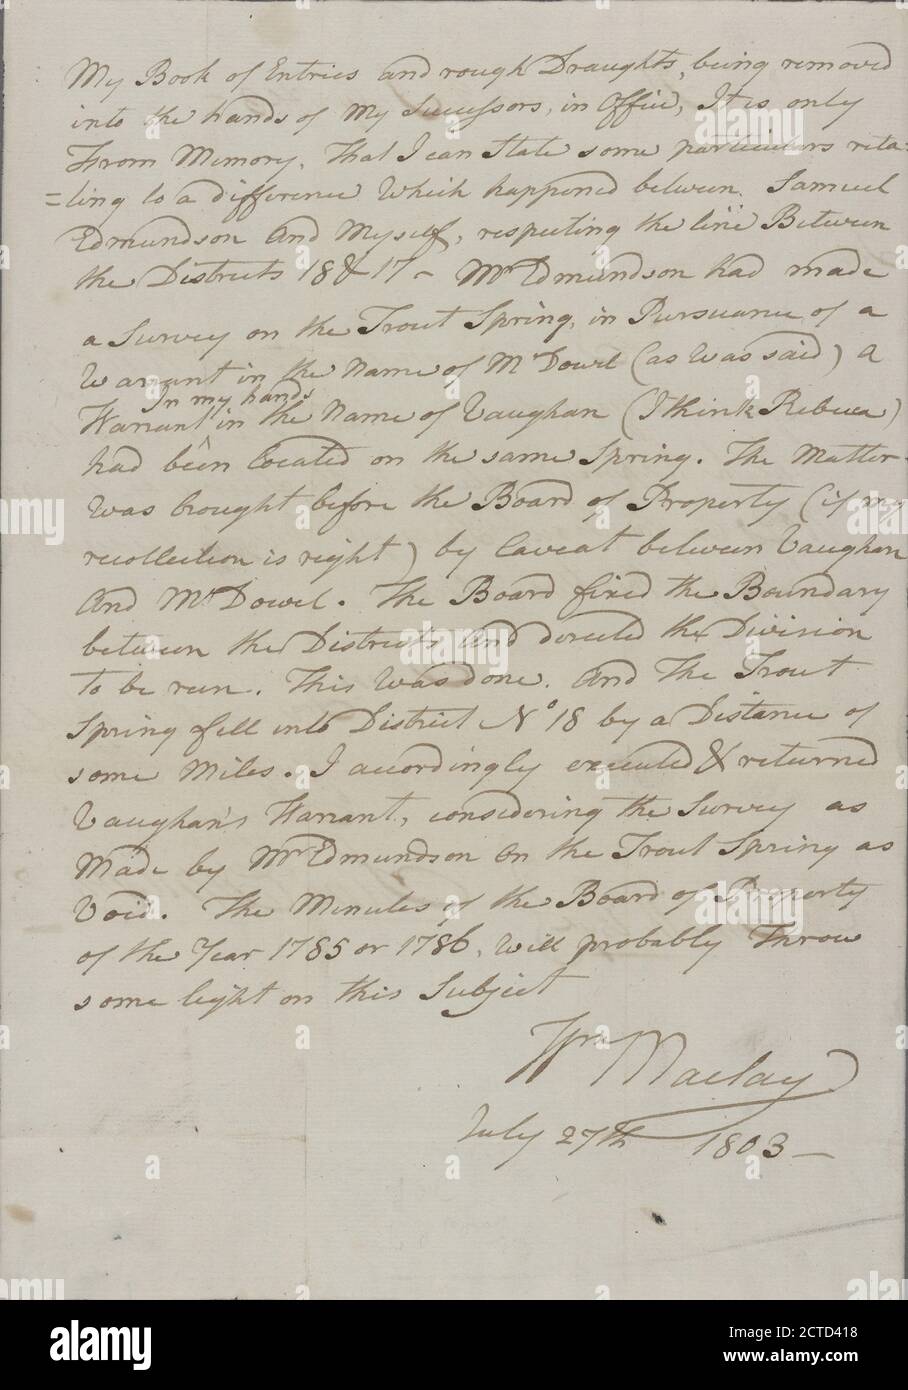 My Book of Entries and rough Draughts, being removed
into the hands of my Sucessors, in Office, It is only
From Memory, That I can State some particulars rela-
=ting to a difference Which happened between Samuel
Edmundson And Myself, respecting the line Between
the Districts 18 & 17 – Mr Edmundson had made
a Survey on the Trout Spring, in Pursuance of a
Warrant in the Name of McDowel (as was said) A
In my hands
Warrant ^ in the Name of Vaughan (I think Rebeca)
had been located on the same Spring. The Matter
Was brought before the Board of Property (if my
recollection is right) by Caveat between Vaughan
And McDowel. The Board fixed the Boundary
between the Districts And directed the Division
to be run. This Was done. And The Trout
Spring fell into District No 18 by a Distance of
some Miles. I accordingly executed & returned
Vaughan's Warrant, considering the Survey as
Made by Mr Edmundson on the Trout Spring as
Void. The Minutes of the Board of Property
of the Year 1785 or 1786, will probably Throw
some light on this Subject
Wm Maclay
July 27th 1803 –
alamy
a
alamy
www.alamy.com
Image ID: 2CTD418